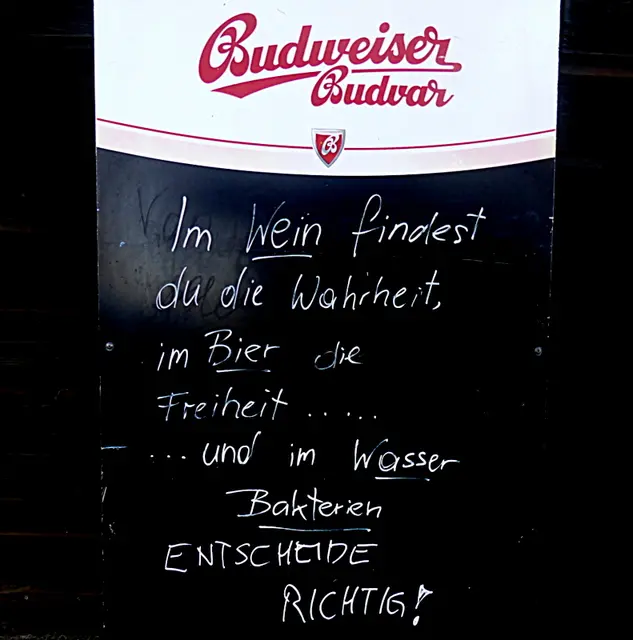 Budweiser
Budvar
B
Im Wein findest
du die Wahrheit,
im Bier die
Freiheit .....
... und im Wasser
Bakterien
ENTSCHEIDE
RICHTIG!